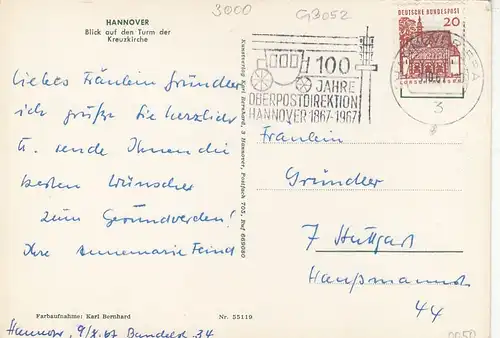 3000
G3052
HANNOVER
Blick auf den Turm der
Kreuzkirche
DEUTSCHE BUNDESPOST
20
100
JAHRE
OBERPOSTDIREKTION
HANNOVER 1867-1967
3
Liebes Fräulein Gründler
ich grüße Sie herzlich
u. sende Ihnen die
besten Wünsche
zum Gesundwerden!
Ihre Annemarie Feind
Kunstverlag Karl Bernhard, 3 Hannover, Postfach 705, Ruf 669080
Fräulein
Gründler
7 Stuttgart
Haußmannstr
44
Farbaufnahme: Karl Bernhard
Nr. 55119
Hannover, 9/X.67 34